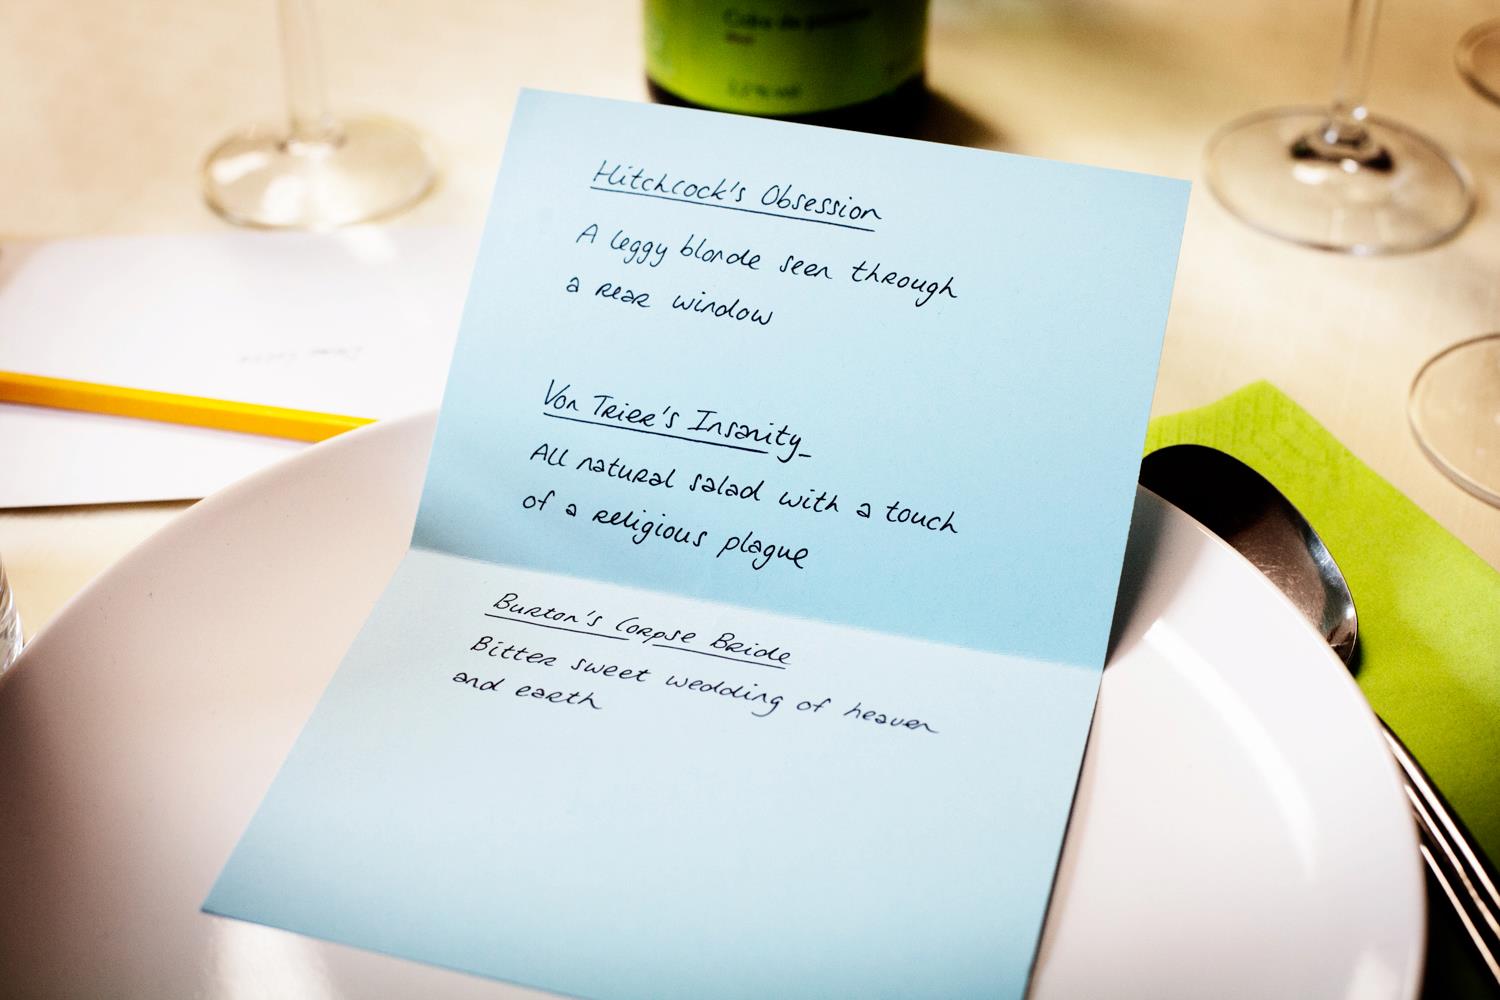 Hitchcock's Obsession
A leggy blonde seen through
a rear window
Von Trier's Insanity
All natural salad with a touch
of a religious plague
Burton's Corpse Bride
Bitter sweet wedding of heaven
and earth